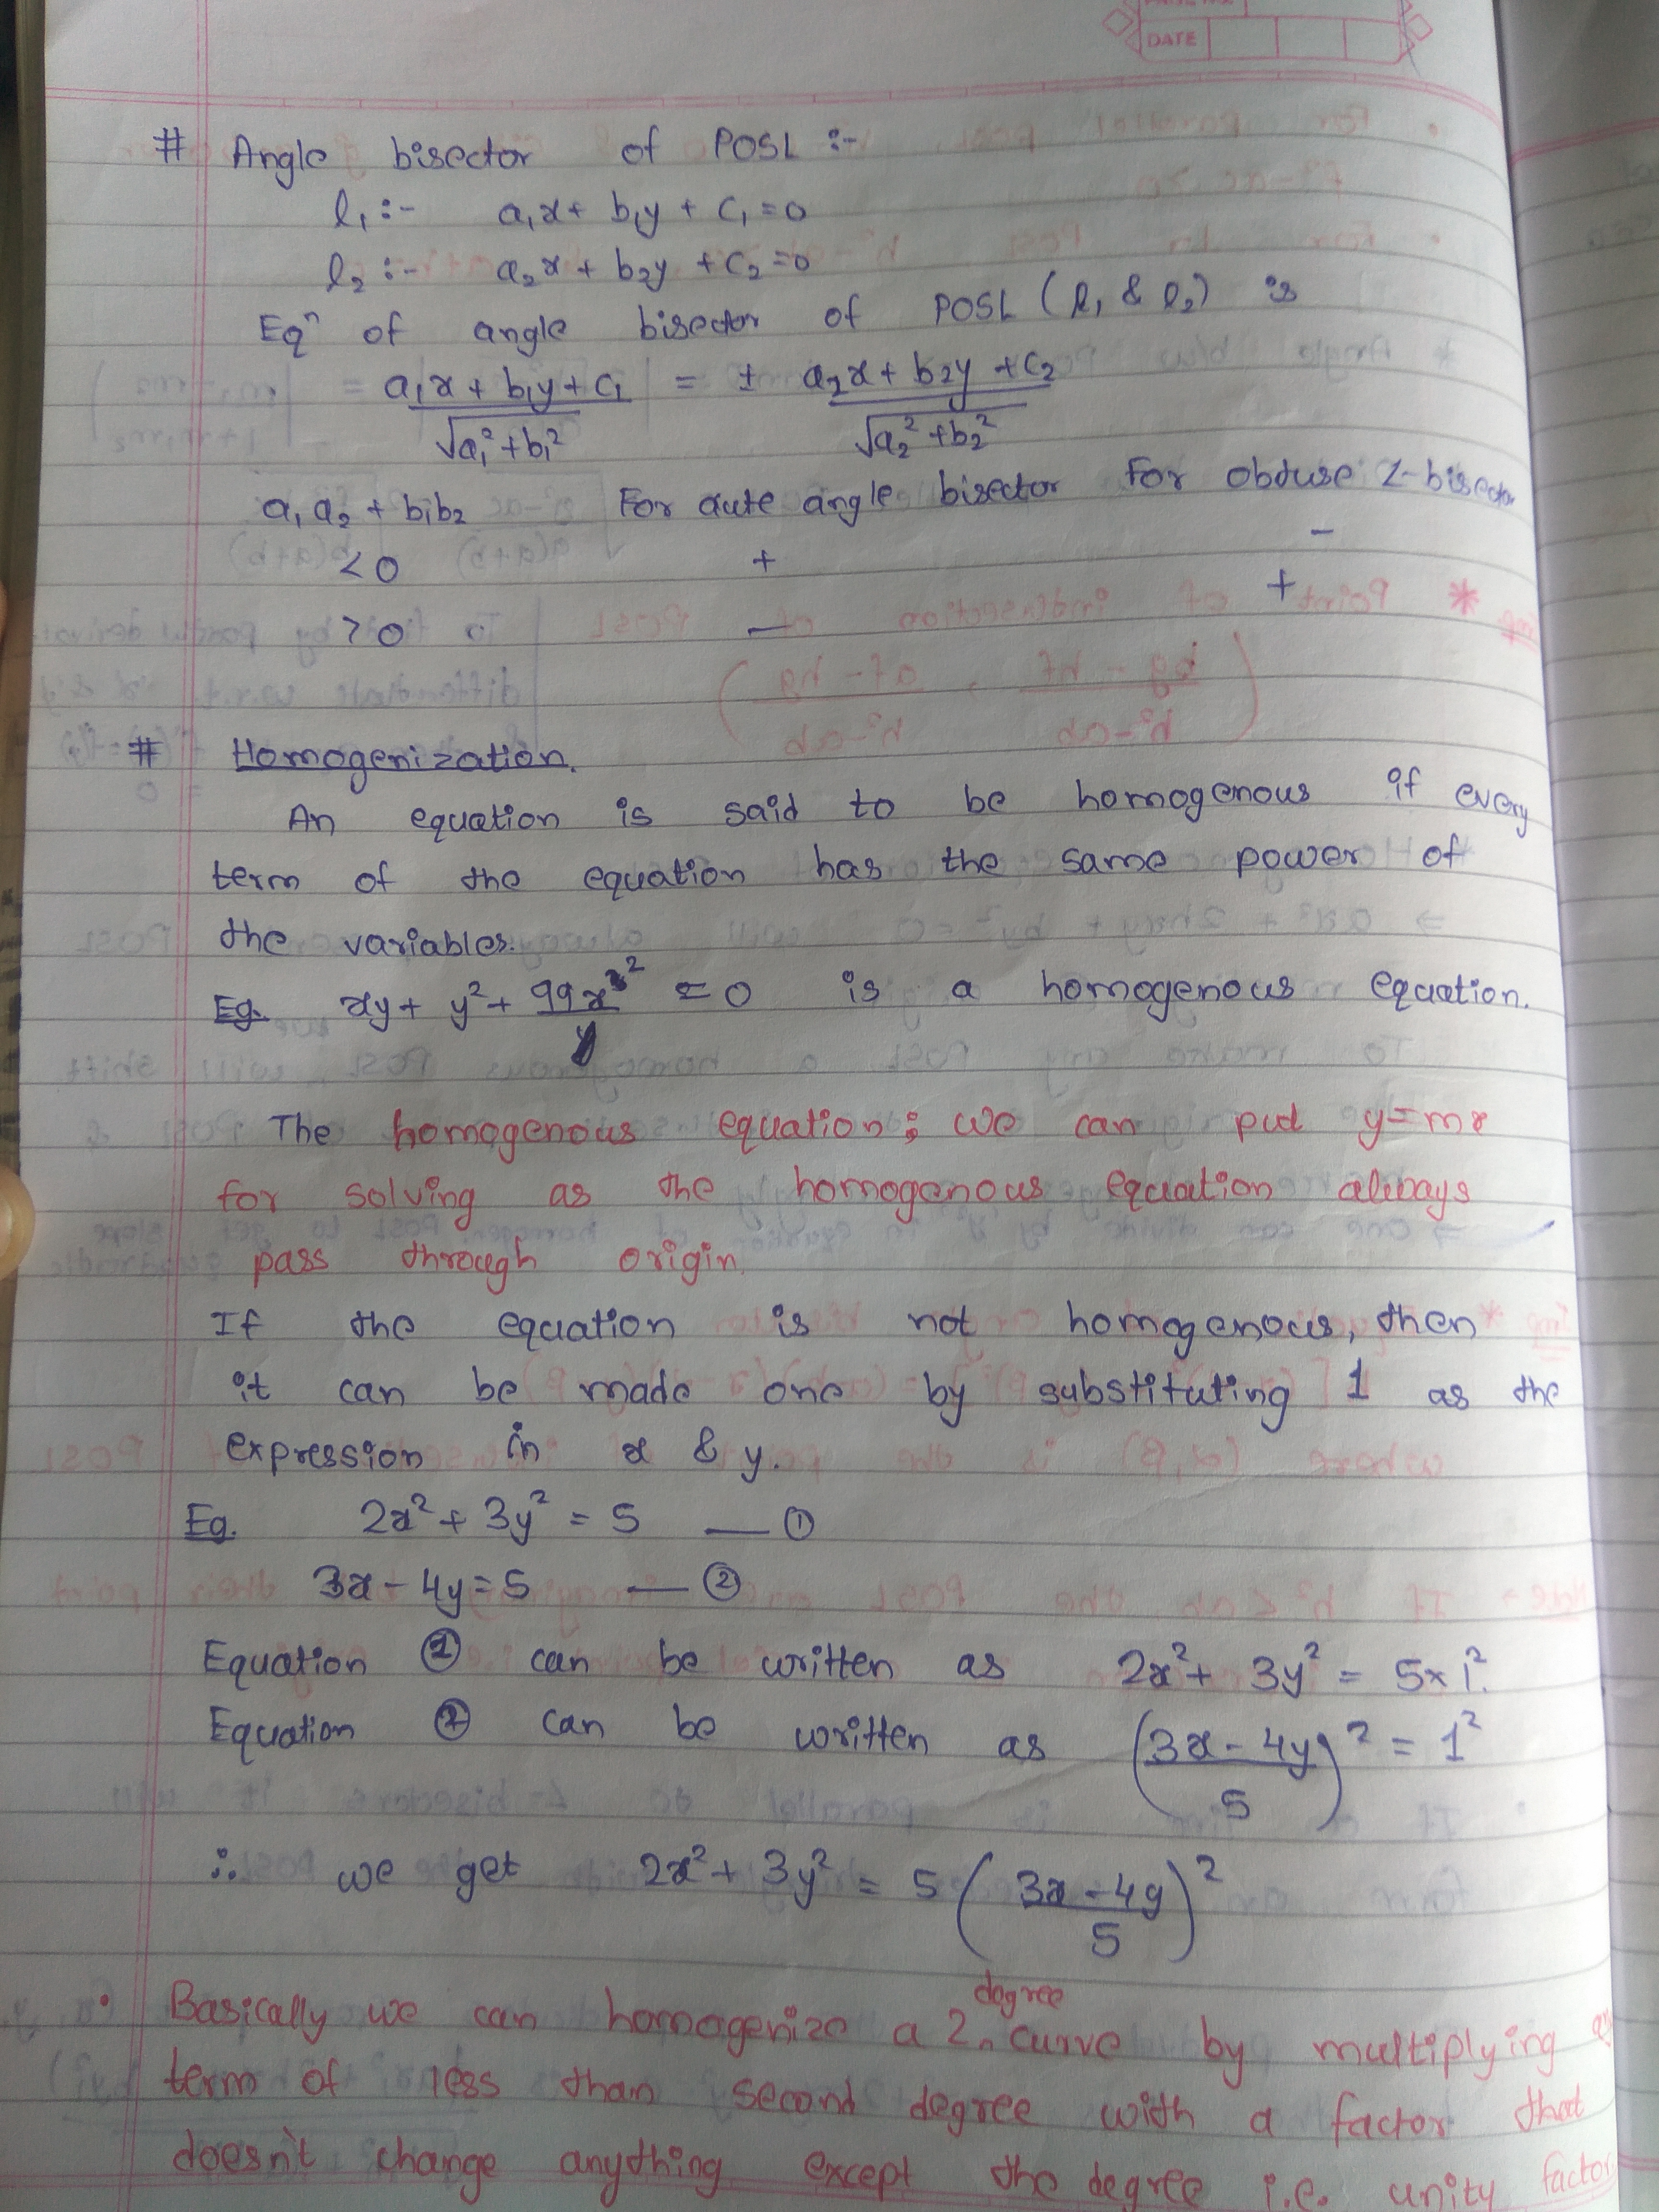 DATE
# Angle bisector of POSL :-
l₁ :- a₁x + b₁y + c₁ = 0
l₂ :- a₂x + b₂y + c₂ = 0
Eqⁿ of angle bisector of POSL (l₁ & l₂) is
= (a₁x + b₁y + c₁)/√(a₁² + b₁²) = ± (a₂x + b₂y + c₂)/√(a₂² + b₂²)
a₁a₂ + b₁b₂ For aute angle bisector For obtuse ∠-bisector
< 0 + -
> 0 - +
# Homogenization.
An equation is said to be homogenous if every
term of the equation has the same power of
the variables.
Eg. xy + y² + 99x³/y = 0 is a homogenous equation.
The homogenous equation; we can put y=mx
for solving as the homogenous equation always
pass through origin.
If the equation is not homogenous, then
it can be made one by substituting 1 as the
expression in x & y.
Eg. 2x² + 3y² = 5 — ①
3x - 4y = 5 — ②
Equation ① can be written as 2x² + 3y² = 5 × 1².
Equation ② can be written as ((3x - 4y)/5)² = 1²
∴ we get 2x² + 3y² = 5 ((3x - 4y)/5)²
• Basically we can homogenize a 2 degree curve by multiplying
term of less than second degree with a factor that
doesn't change anything except the degree i.e. unity factor